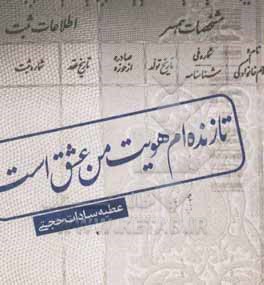 مشخصات همسر
اطلاعات ثبت
نام و نام خانوادگی
شماره ملی شناسنامه
تاریخ تولد
صادره از حوزه
تاریخ عقد
شماره ثبت
تا زنده ام هویت من عشق است
عطیه سادات حجتی